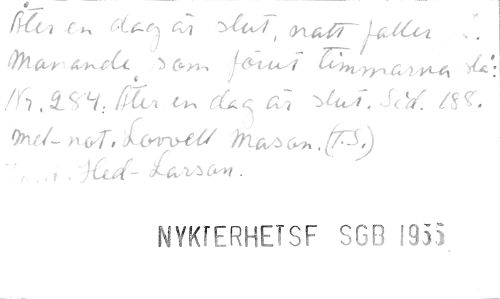 Åter en dag är slut, natt faller
Manande som förut timmarna slå:
Nr. 284. Åter en dag är slut. Sid. 188.
mel-not. Lowell Mason. (T.S.)
Hed-Larson.
NYKTERHETSF SGB 1955